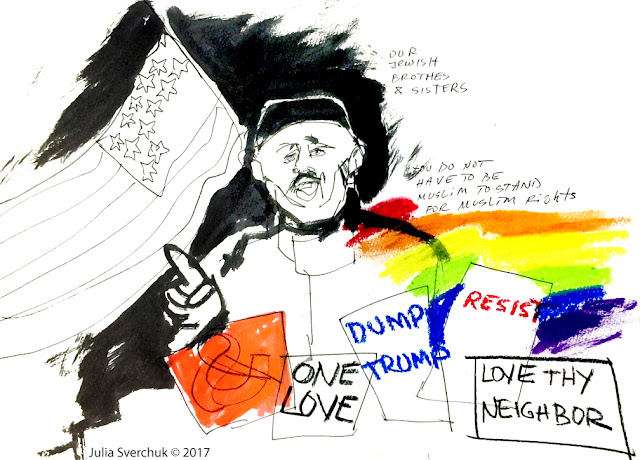 OUR
JEWISH
BROTHES
& SISTERS
YOU DO NOT
HAVE TO BE
MUSLIM TO STAND
FOR MUSLIM RIGHTS
DUMP
TRUMP
RESIST
ONE
LOVE
LOVE THY
NEIGHBOR
Julia Sverchuk © 2017